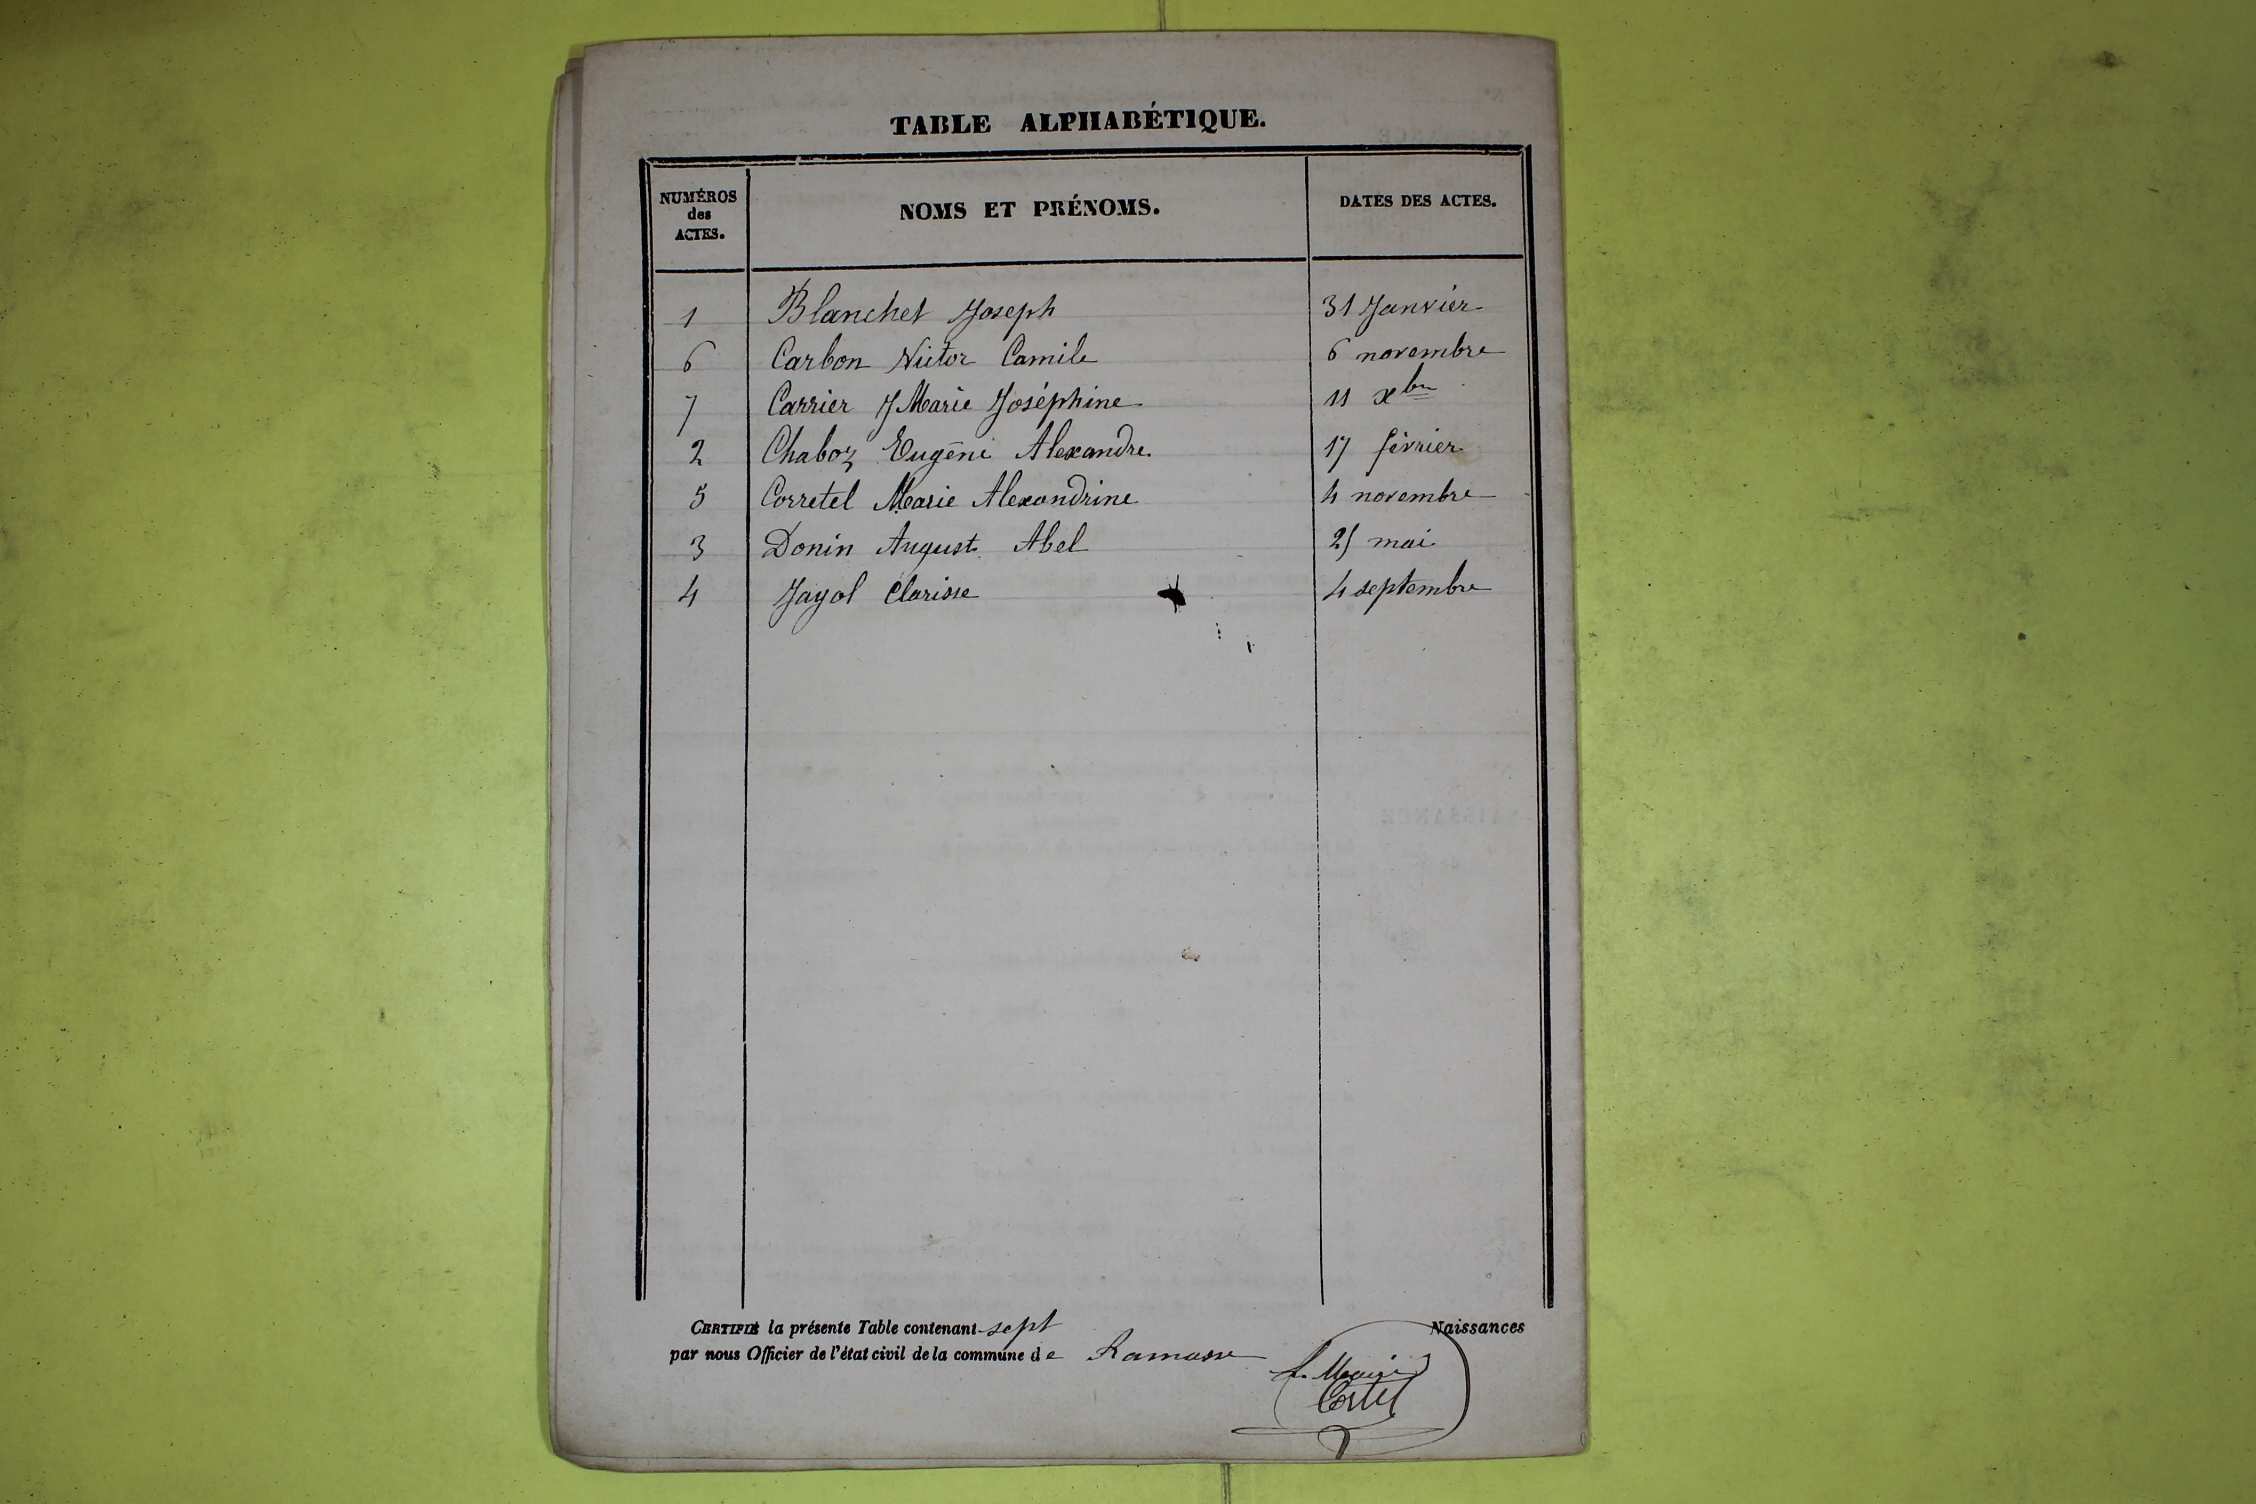 TABLE ALPHABÉTIQUE.
NUMÉROS
des
ACTES.
NOMS ET PRÉNOMS.
DATES DES ACTES.
1 Blanchet Joseph 31 Janvier
6 Carbon Victor Camile 6 novembre
7 Carrier J Marie Joséphine 11 xbre
2 Chaboz Eugène Alexandre 17 février
5 Corretel Marie Alexandrine 4 novembre
3 Donin August Abel 25 mai
4 Jayol Clarisse 4 septembre
CERTIFIÉ la présente Table contenant sept Naissances
par nous Officier de l'état civil de la commune de Ramasse